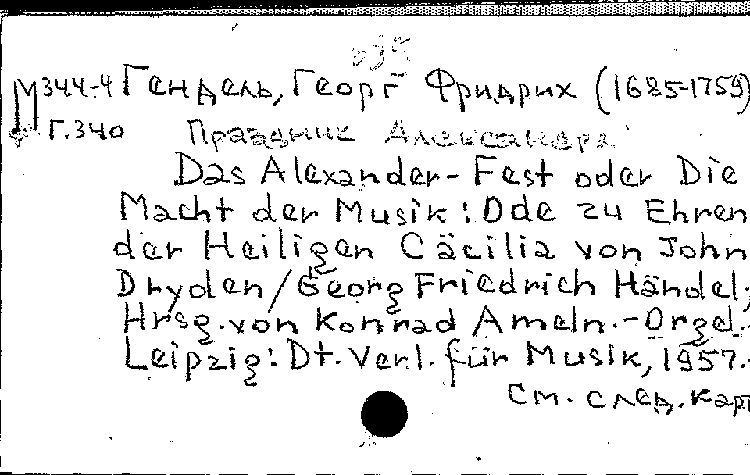 М344-4 Гендель, Георг Фридрих (1685-1759)
Г.340 Праздник Александра
Das Alexander-Fest oder Die
Macht der Musik: Ode zu Ehren
der Heiligen Cäcilia von John
Dryden/Georg Friedrich Händel;
Hrsg. von Konrad Ameln.-Orgel.-
Leipzig: Dt. Verl. für Musik, 1957.-
См. след. карт